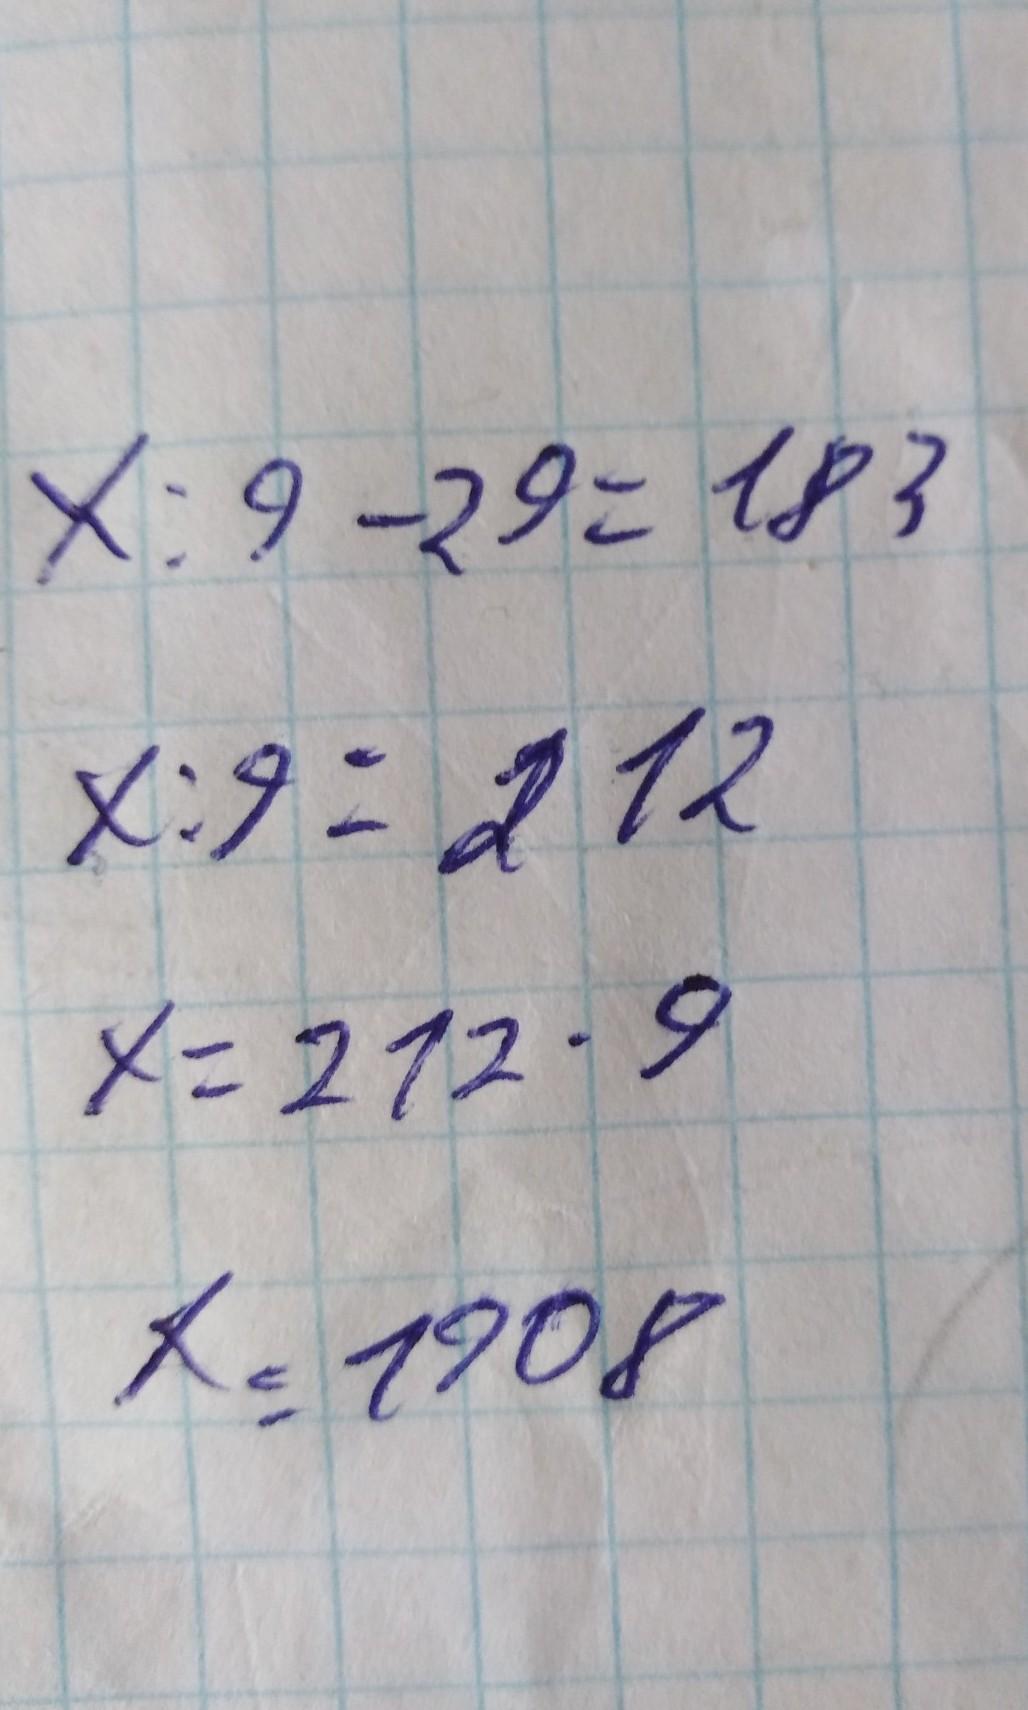 x:9-29=183
x:9=212
x=212·9
x=1908